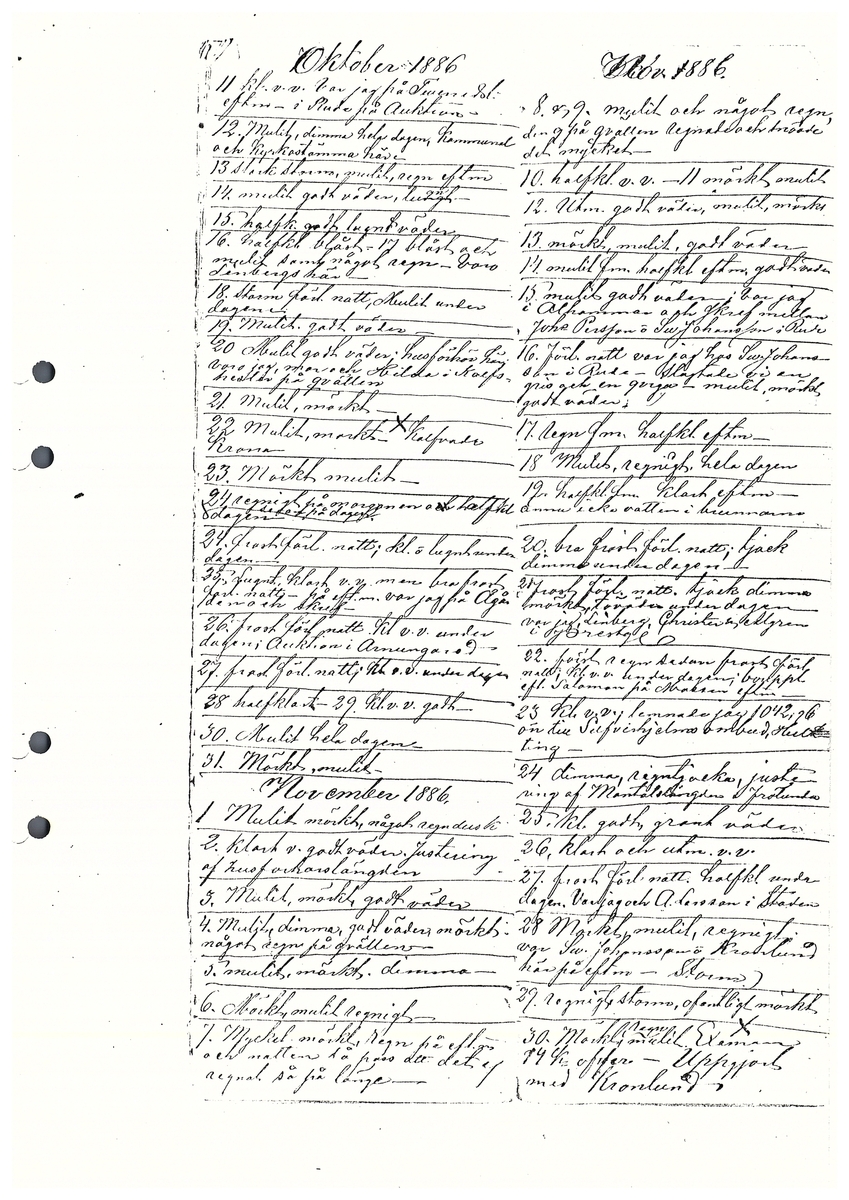 Oktober 1886
11 kl. v.v. Var jag på
eftm - i Rude på Auktion -
12. Mulit, dimma hela dagen, Kommunal
och Kyrkostämma häre
13 stark storm, mulit, regn eftm
14. mulit godt väder, lugnt -
15. halfk. godt lugnt väder
16. halfkl blåst - 17 blåst och
mulit samt något regn - Voro
Lenbergs här
18. Storm förl. natt, Mulit under
dagen
19. Mulit. godt väder -
20 Mulit godt väder; husförhör här,
voro jag, mor och Hilda i
på qvällen
21. Mulit, mörkt -
22 Mulit, mörkt - X Kalfvade
Krona -
23. Mörkt mulit -
24 regnigt på morgonen och halfkl
dagen
24. frost förl. natt; kl. o lugnt under
dagen -
25. Lugnt, klart v.v. men bra frost
förl. natt; - på eft.m. var jag på
och
26. frost förl natt kl v.v. under
dagen; Auktion i
27. frost förl. natt; kl v.v. under dagen
28 halfklart - 29. kl. v.v. godt -
30. Mulit hela dagen -
31. Mörkt, mulit -
November 1886.
1 Mulit mörkt, något regndusk
2. klart v. godt väder. Justering
af husförhörslängden
3. Mulit, mörkt, godt väder
4. Mulit, dimma, godt väder, mörkt -
något regn på qvällen -
5. mulit, mörkt. dimma -
6. Mörkt, mulit regnigt -
7. Mycket mörkt, regn på eftm
och natten så pass att det ej
regnat så på länge -
Nov. 1886.
8. & 9. mulit och något regn,
den 9 på qvällen regnade och snöade
det mycket -
10. halfkl. v.v. - 11 mörkt mulit
12. Utm. godt väder, mulit, mörkt
13. mörkt, mulit, godt väder -
14. mulit fm. halfkl eftm. godt väder
15. mulit godt väder; var jag
i och mellan
Joh. Persson o Sw. Johansson i Rude
16. Förl. natt var jag hos Sw. Johans-
son i Rude - Slagtade vi en
gris och en qviga - mulit, mörkt
godt väder;
17. regn fm. halfkl eftm -
18 Mulit, regnigt hela dagen
19. halfkl fm. klart eftm -
ännu icke vatten i brunnarne
20. bra frost förl. natt; tjock
dimma under dagen -
21 frost förl. natt. tjock dimma
mörkt, under dagen
var jag, Lenberg, Christer o Ahlgren
i
22. först regn sedan frost förl
natt; kl. v.v. under dagen;
eft. Salomon på eftm -
23 kl. v.v.; lemnade jag 1042,76
till Silfverhjelms ombud,
ting -
24 dimma, regntjocka, juste-
ring af Mantalslängden i Frötuna
25. kl. godt, grant väder
26. klart och utm. v.v.
27. frost förl natt. halfkl. under
dagen. Var jag och A. Larsson i Staden
28 Mörkt, mulit, regnigt.
var Sw. Johansson o Kronlund
här på eftm - Storm
29. regnigt, storm, ofantligt mörkt
30. Mörkt, mulit X Examen
14 k. offer - Uppgjort
med Kronlund